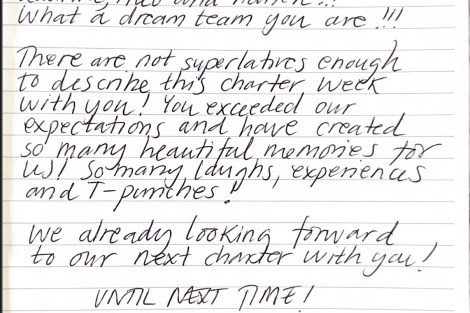 What a dream team you are !!!
There are not superlatives enough
to describe this charter week
with you! You exceeded our
expectations and have created
so many beautiful memories for
us! So many laughs, experiences
and T-punches!
We already looking forward
to our next charter with you!
UNTIL NEXT TIME!